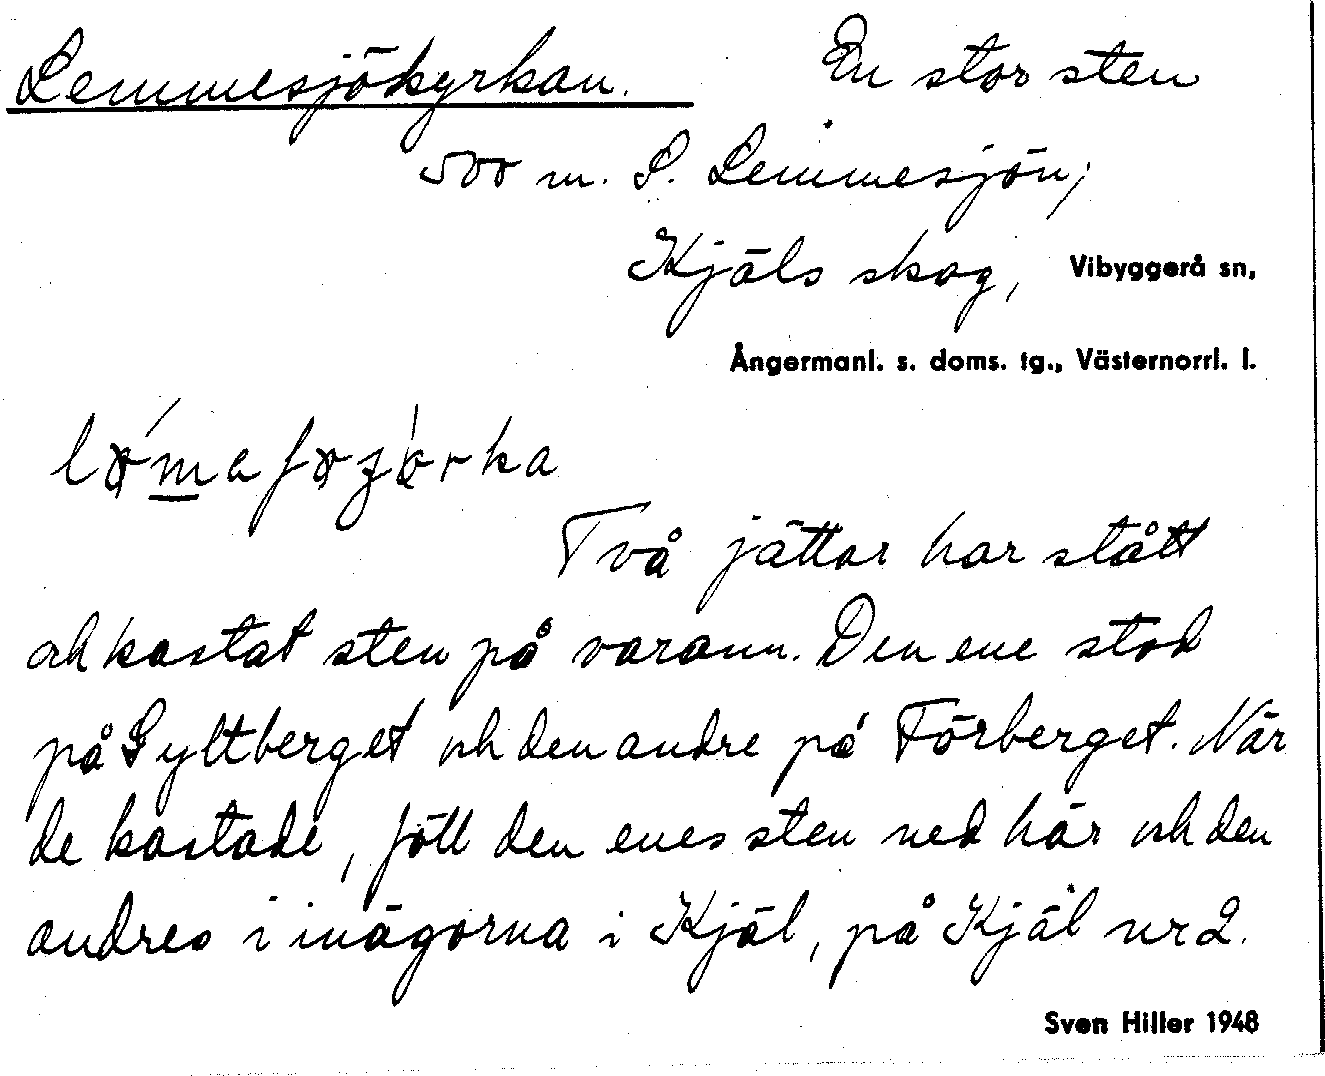 Lemmesjökyrkan. En stor sten
500 m. S. Lemmesjön,
Kjäls skog, Vibyggerå sn,
Ångermanl. s. doms. tg., Västernorrl. l.
Två jättar har stått
och kastat sten på varann. Den ene stod
på Syltberget och den andre på Förberget. När
de kastade, föll den enes sten ned här och den
andres i inägorna i Kjäl, på Kjäl nr 2.
Sven Hiller 1948